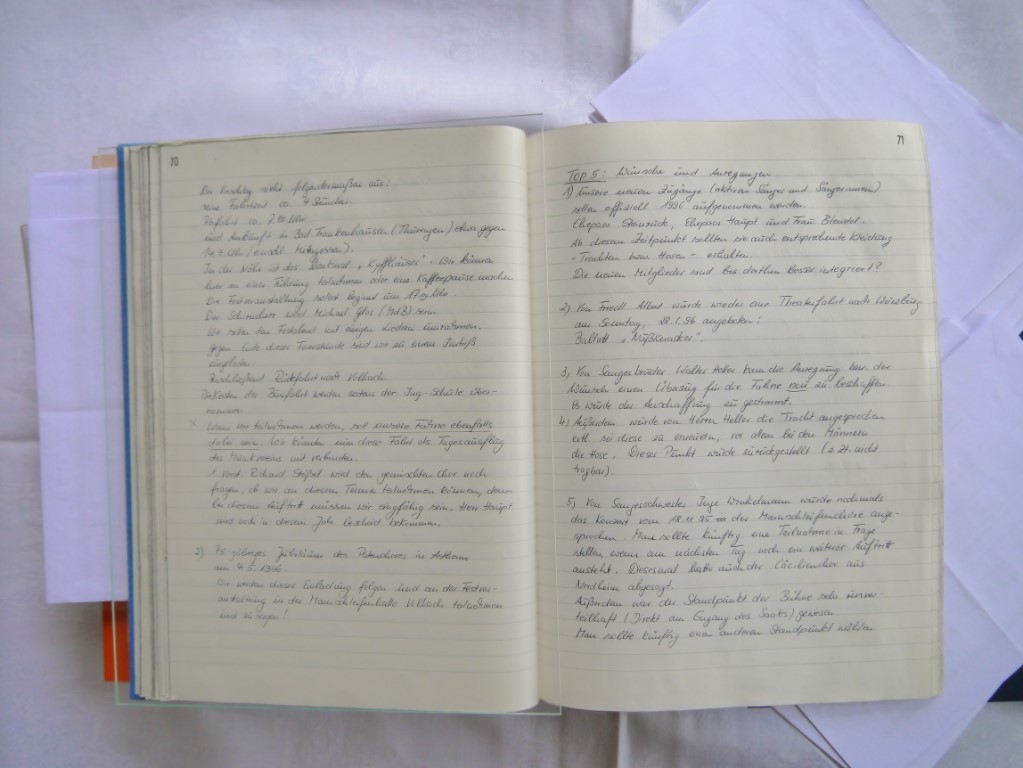 70
Der Vorschlag sieht folgendermaßen aus:
reine Fahrtzeit ca. 4 Stunden.
Abfahrt ca. 7.00 Uhr
und Ankunft in Bad Frankenhausen (Thüringen) etwa gegen
11 Uhr (anschl. Mittagessen).
In der Nähe ist das Denkmal „Kyffhäuser". Wir können
hier an einer Führung teilnehmen oder eine Kaffeepause machen
Die Festveranstaltung selbst beginnt um 17.00 Uhr.
Der Schirmherr wird Michael Glos (MdB) sein.
Wir sollen den Festabend mit einigen Liedern umrahmen.
gegen Ende dieser Feierstunde sind wir zu einem Imbiß
eingeladen.
Anschließend Rückfahrt nach Volkach.
Die Kosten der Busfahrt werden seitens der Jug-Schule über-
nommen.
Wenn wir teilnehmen werden, soll unsere Fahne ebenfalls
dabei sein. Wir könnten nun diese Fahrt als Tagesausflug
des Sankt mit verbinden.
1. Vorst. Richard Stößel wird den gemischten Chor noch
fragen, ob wir an diesem Termin teilnehmen können, denn
bei diesem Auftritt müssen wir singfähig sein. Herr Haupt
wird noch in diesem Jahr Bescheid bekommen.
2) 75 jähriges Jubiläum des Patenchores in Astheim
am 4.5.1996.
Wir werden dieser Einladung folgen und an der Festver-
anstaltung in der Mainschleifenhalle Volkach teilnehmen
und zu singen!
71
Top 5: Wünsche und Anregungen
1) Unsere neuen Zugänge (aktiven Sänger und Sängerinnen)
sollen offiziell 1996 aufgenommen werden.
Ehepaar Haupt und Frau Blendel.
Ab diesem Zeitpunkt sollten sie auch entsprechende Kleidung
- Trachten bzw. Hosen - erhalten.
Die neuen Mitglieder sind bis dorthin besser integriert?
2) Von Friedl Albert wurde wieder eine Theaterfahrt nach Würzburg
am Sonntag, 28.1.96 angeboten:
Ballett „Nußknacker".
3) Von Sangesbruder Walter Heller kam die Anregung bzw. der
Wunsch einen Überzug für die Fahne neu zu beschaffen
Es wurde der Anschaffung zu gestimmt.
4) Außerdem wurde von Herrn Heller die Tracht angesprochen
evtl. so diese zu erneuern, vor allem bei den Männern
die Hose. Dieser Punkt wurde zurückgestellt (z.Zt. nicht
tragbar).
5) Von Sangesschwester Inge Winkelmann wurde nochmals
das Konzert vom 18.11.95 der Mainschleifenchöre ange-
sprochen. Man sollte künftig eine Teilnahme in Frage
stellen, wenn am nächsten Tag noch ein weiterer Auftritt
ansteht. Diesesmal hatte auch der Cäcilienchor aus
Nordheim abgesagt.
Außerdem war der Standpunkt der Bühne sehr unvor-
teilhaft (Direkt am Eingang des Saales) gewesen.
Man sollte künftig einen anderen Standpunkt wählen